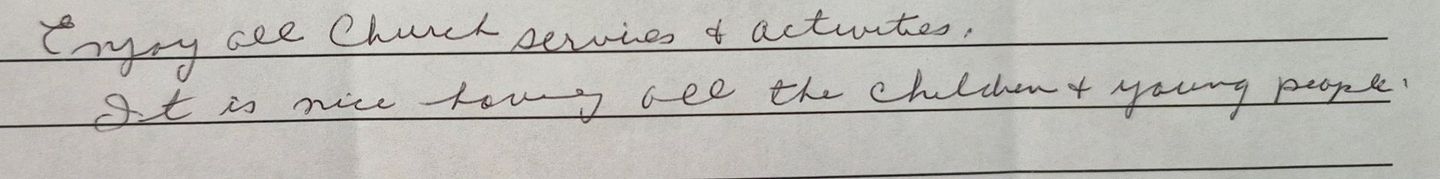 Enjoy all Church services & activities.
It is nice having all the children & young people.